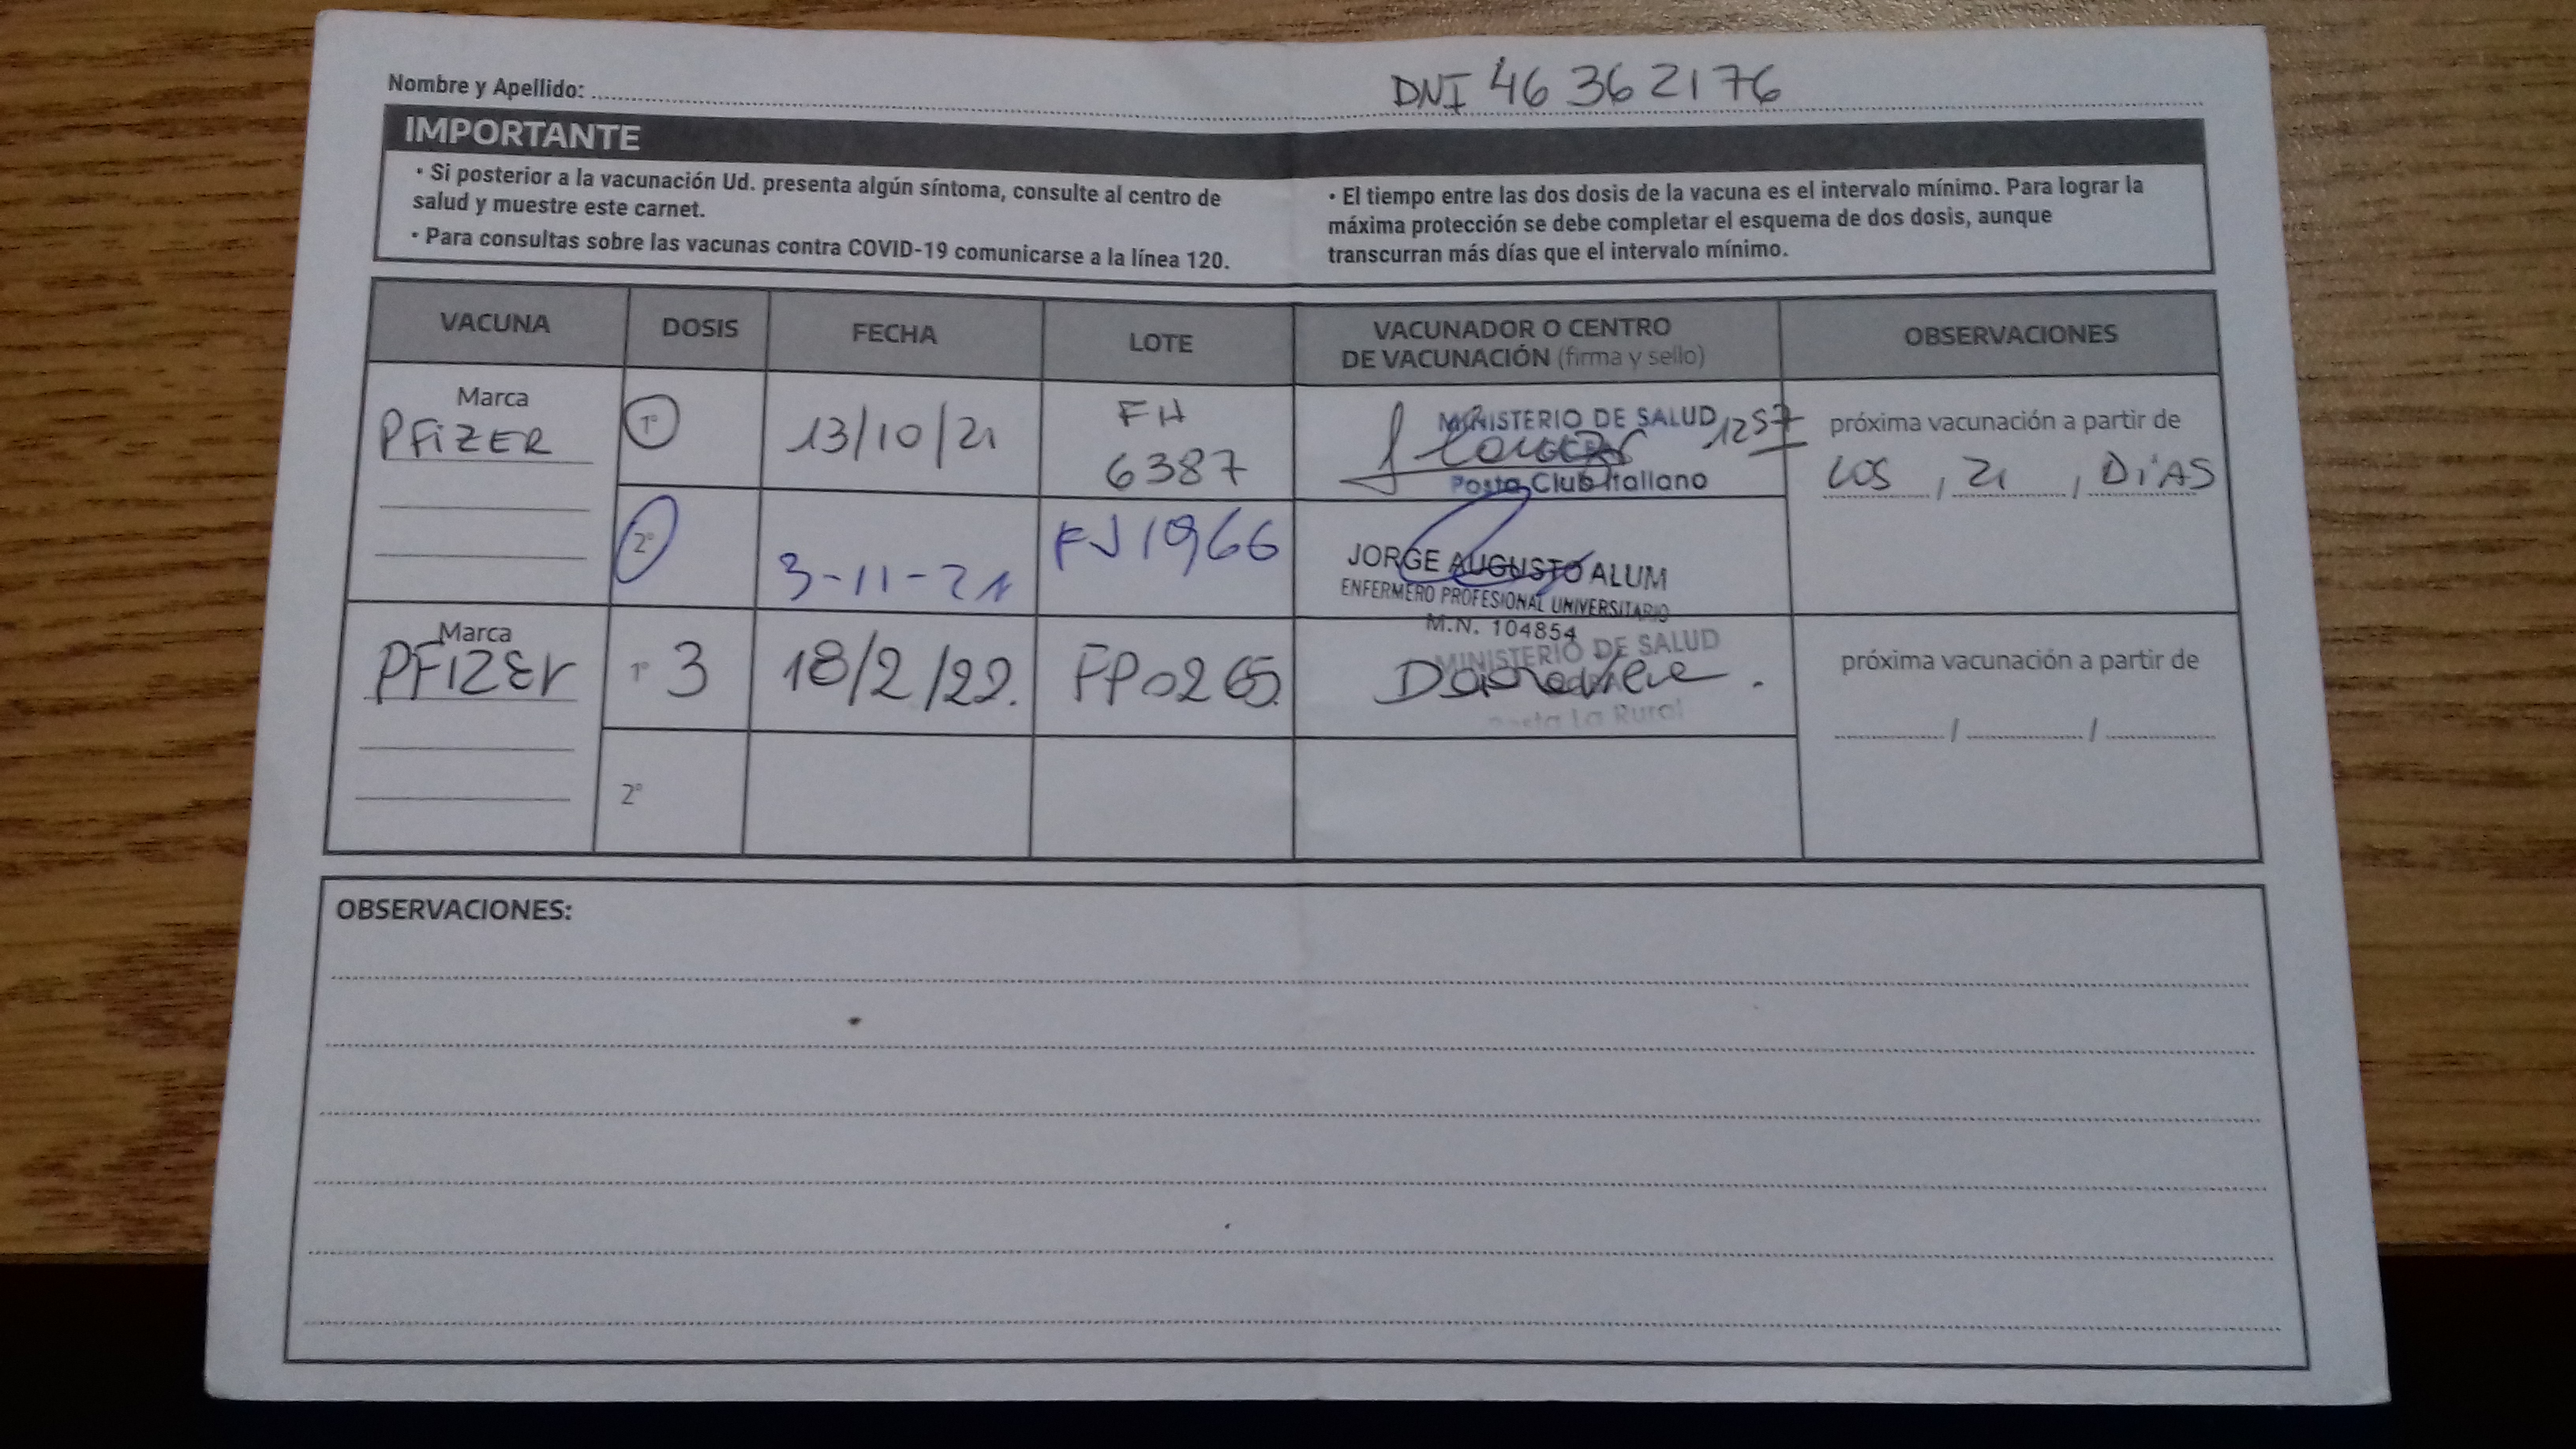 Nombre y Apellido: DNI 46 362176
IMPORTANTE
• Si posterior a la vacunación Ud. presenta algún síntoma, consulte al centro de
salud y muestre este carnet.
• Para consultas sobre las vacunas contra COVID-19 comunicarse a la línea 120.
• El tiempo entre las dos dosis de la vacuna es el intervalo mínimo. Para lograr la
máxima protección se debe completar el esquema de dos dosis, aunque
transcurran más días que el intervalo mínimo.
VACUNA DOSIS FECHA LOTE VACUNADOR O CENTRO
DE VACUNACIÓN (firma y sello) OBSERVACIONES
Marca
PFIZER
1° 13/10/21 FH
6387
MINISTERIO DE SALUD 1257
Posta Club Italiano
próxima vacunación a partir de
LOS, 21, DÍAS
2° 3-11-21 FJ1966
JORGE AUGUSTO ALUM
ENFERMERO PROFESIONAL UNIVERSITARIO
M.N. 104854
Marca
PFIZER
1° 3 18/2/22. FP0265
MINISTERIO DE SALUD
Posta La Rural
próxima vacunación a partir de
/ /
2°
OBSERVACIONES: